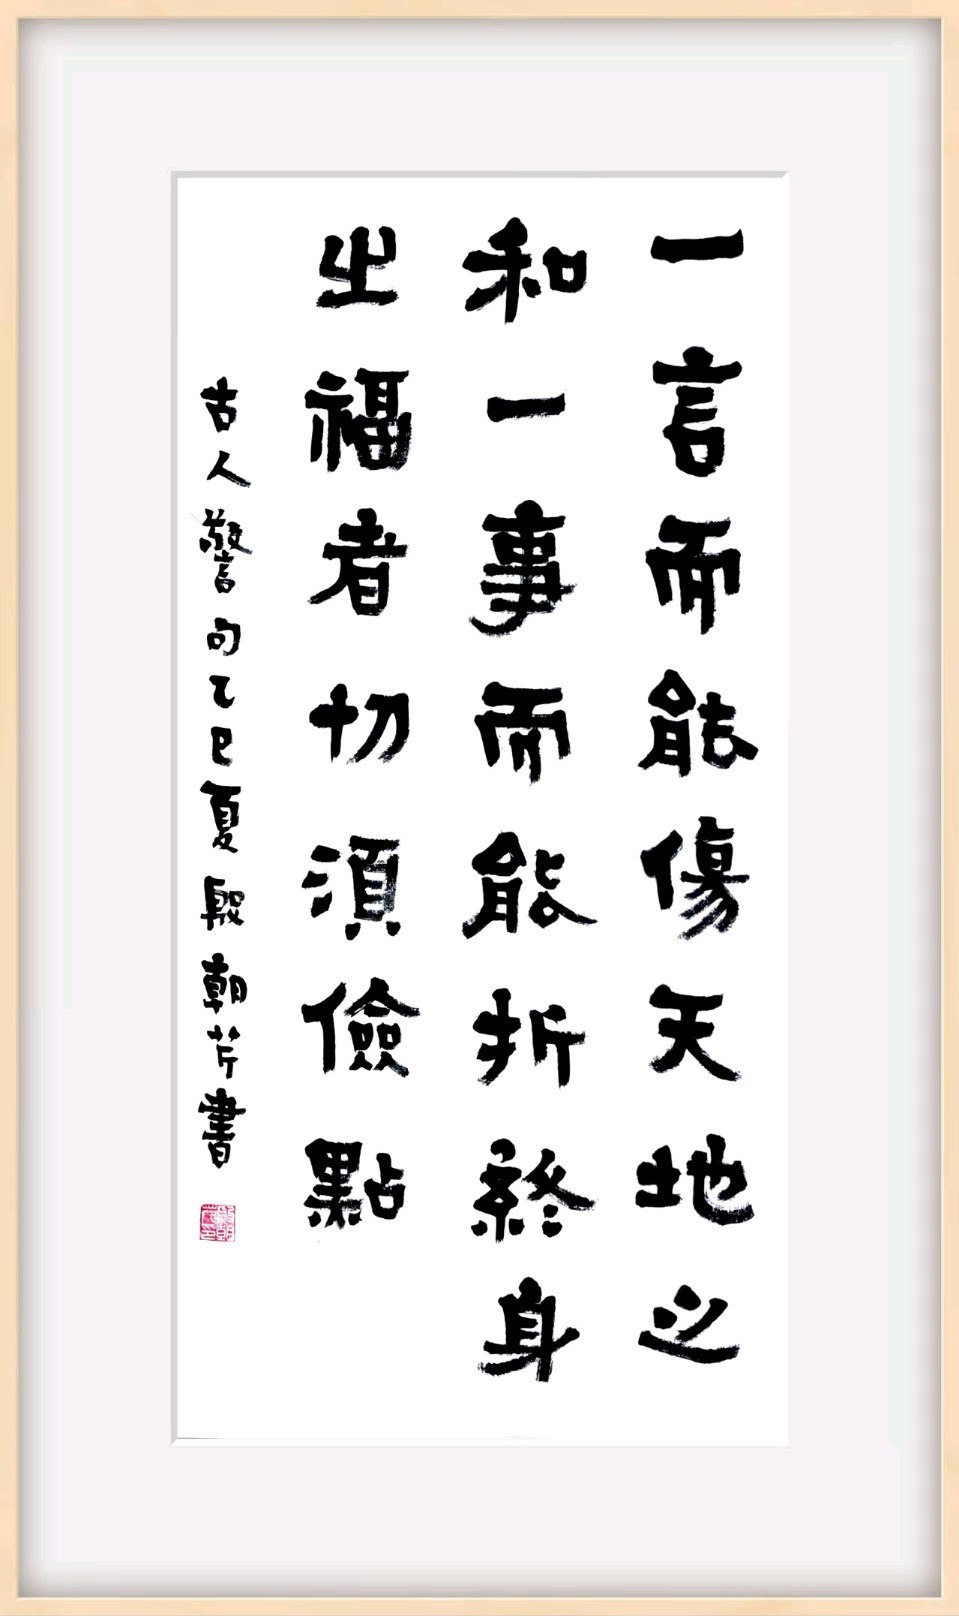 一言而能傷天地之
和一事而能折終身
之福者切須儉點
古人警句乙巳夏殷朝芹書